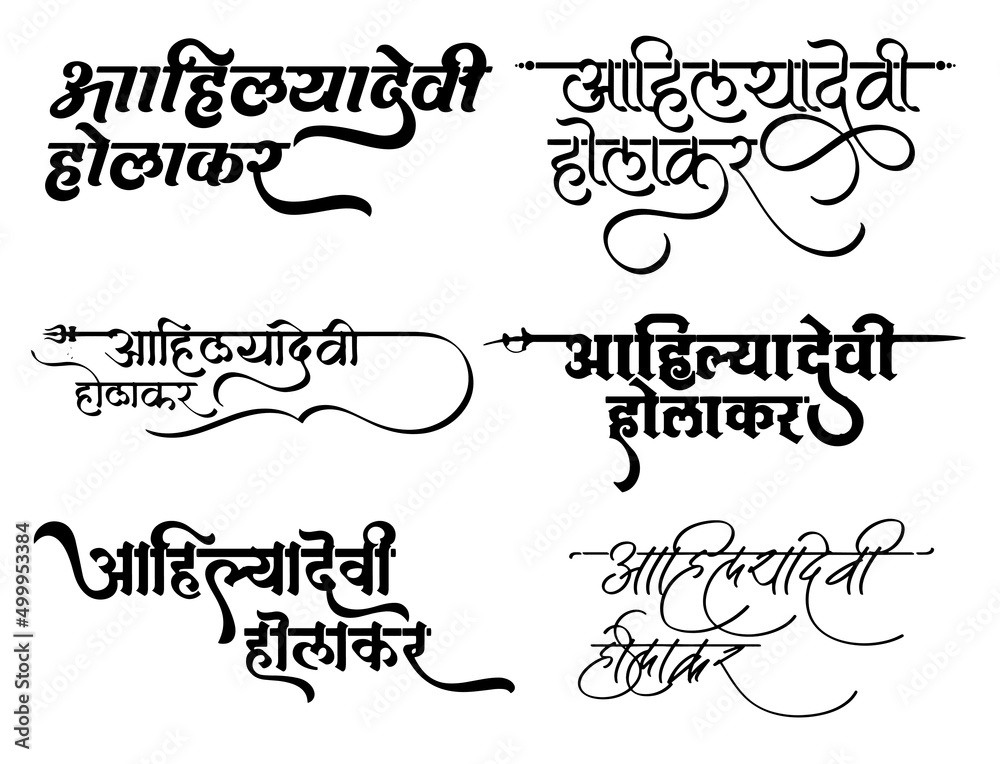 आहिल्यादेवी
होलाकर
आहिल्यादेवी
होलाकर
आहिल्यादेवी
होलाकर
आहिल्यादेवी
होलाकर
आहिल्यादेवी
होलाकर
आहिल्यादेवी
होलाकर
Adobe Stock | #499953384